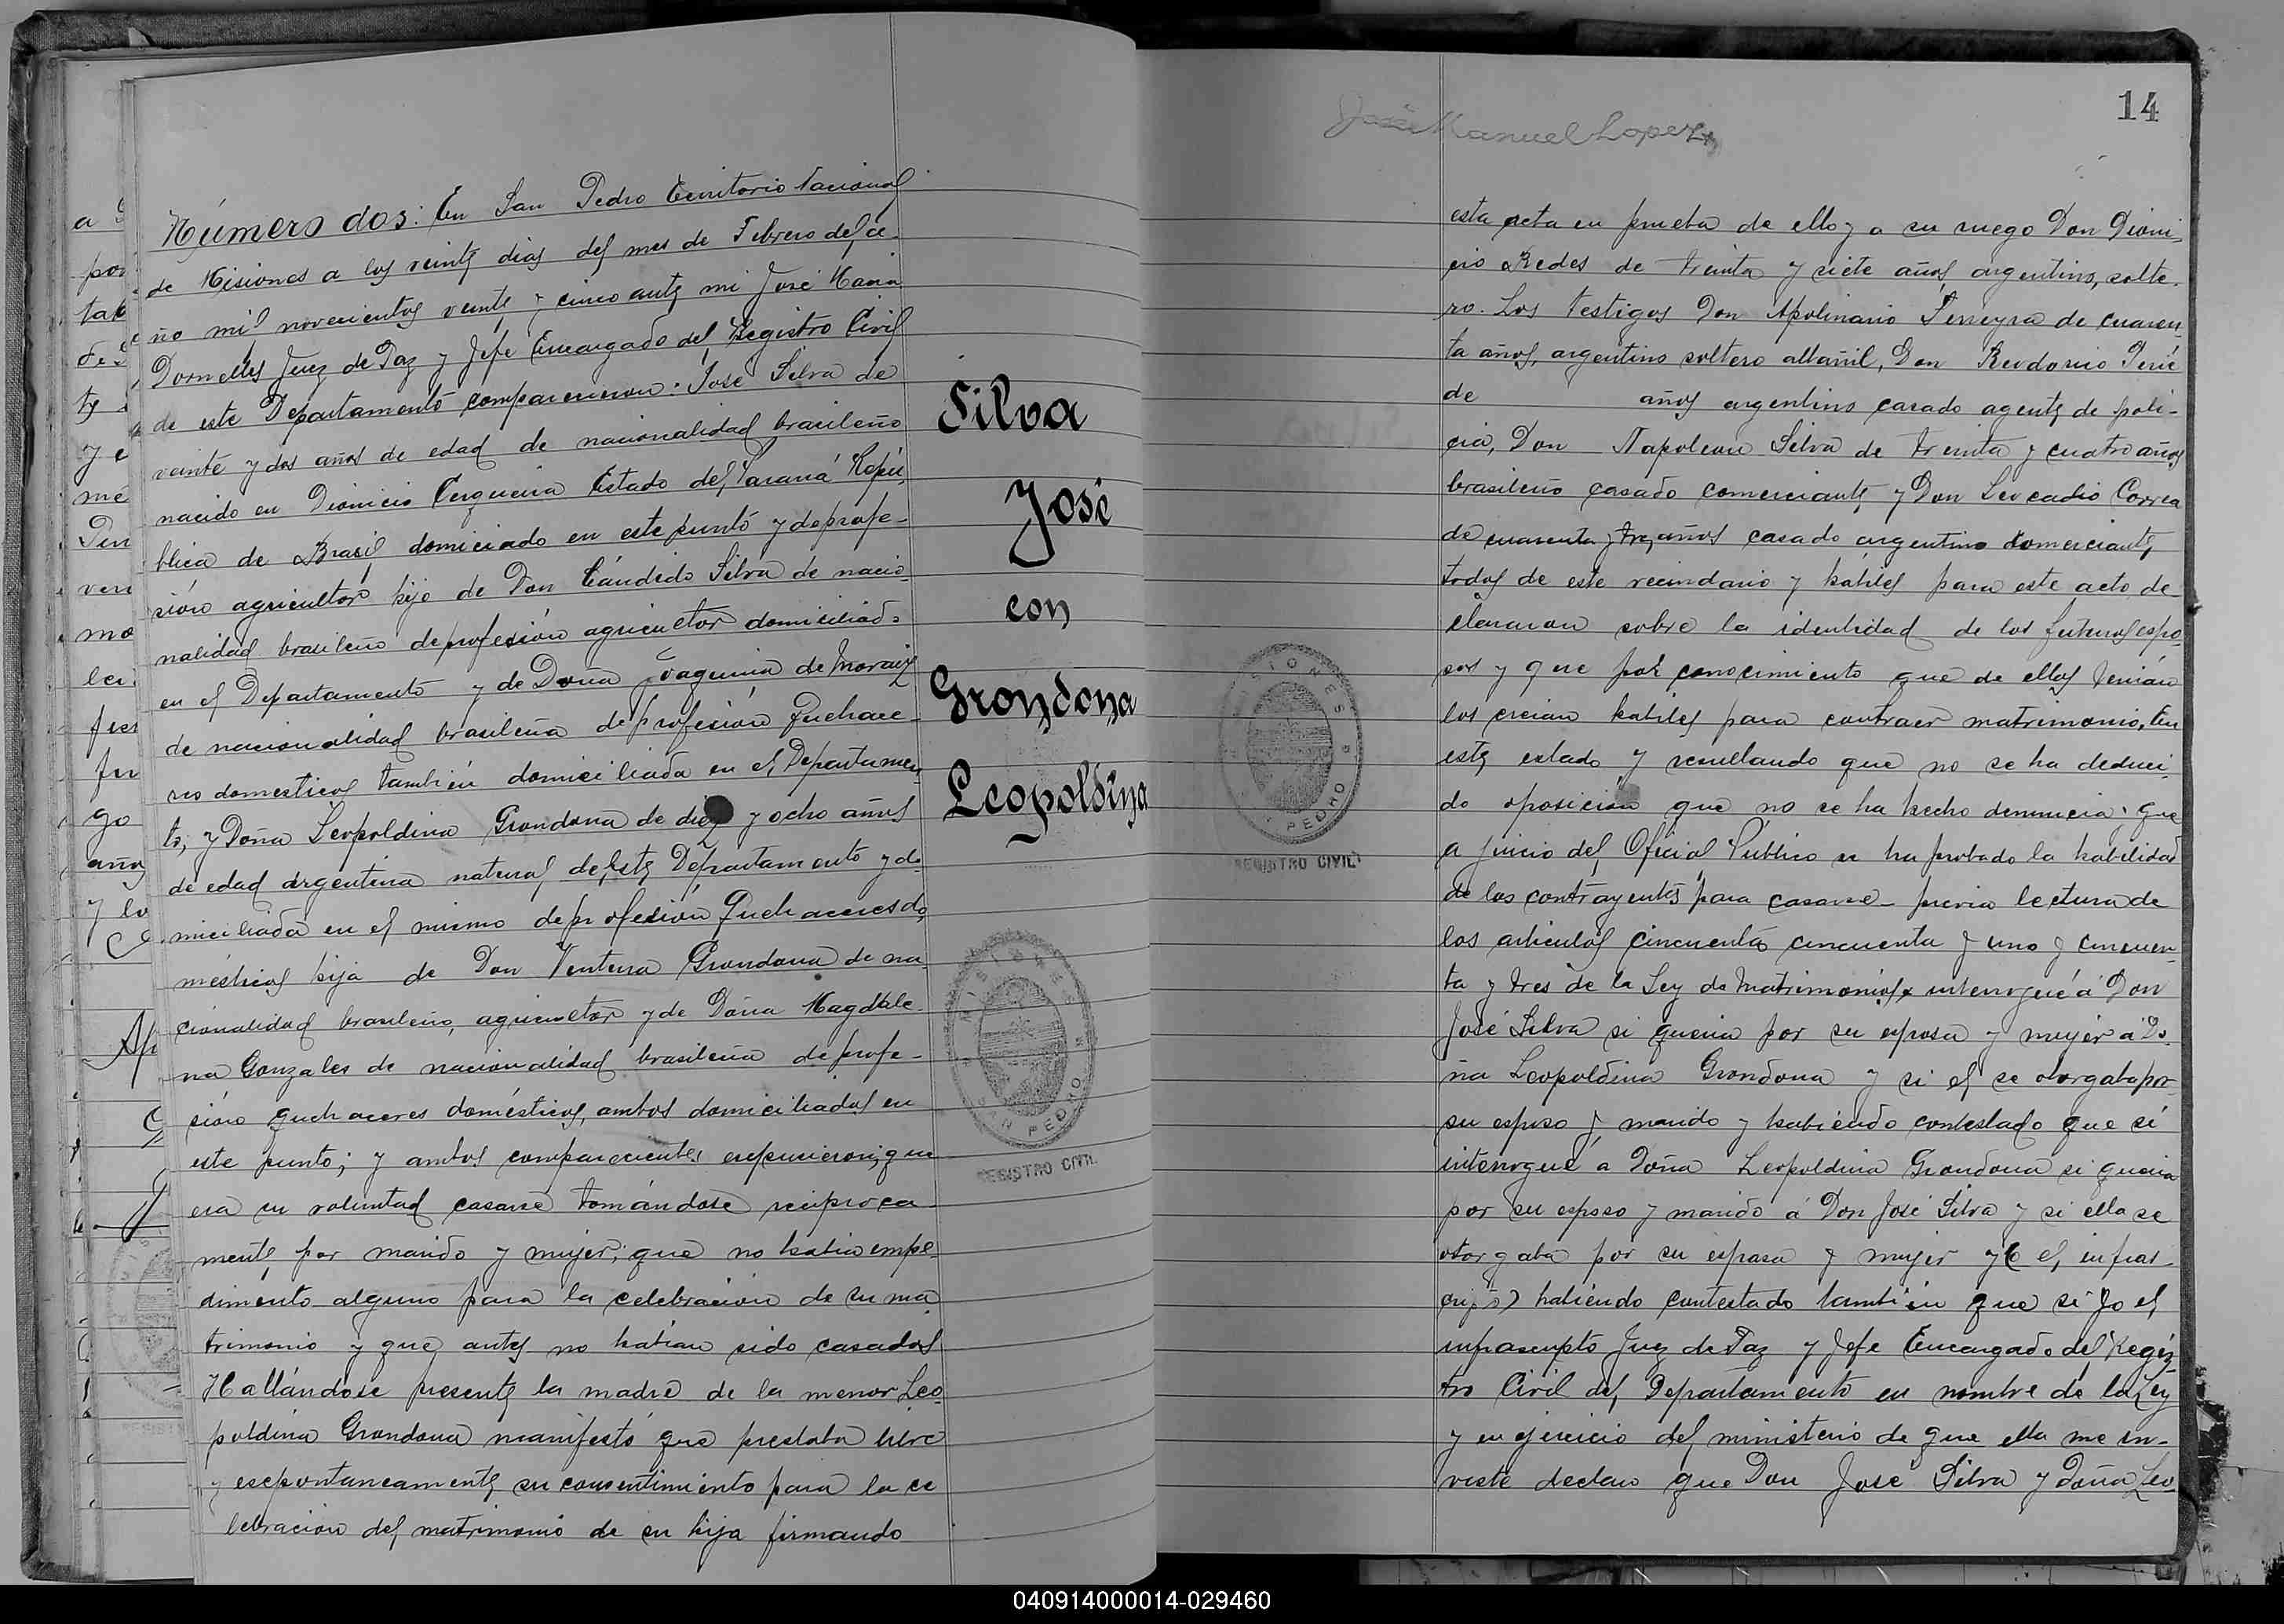 Número dos: En San Pedro Territorio Nacional
de Misiones a los veinte dias del mes de Febrero del a-
ño mil novecientos veinte y cinco ante mi José Maria
Dornelles Juez de Paz y Jefe Encargado del Registro Civil
de este Departamento comparecieron: José Silva de
veinte y dos años de edad de nacionalidad brasileño
nacido en Dionicio Cerqueira Estado del Paraná Repú-
blica de Brasil domiciado en este punto y de profe-
sión agricultor hijo de Don Cándido Silva de nacio-
nalidad brasileño de profesión agricultor domiciliado
en el Departamento y de Doña Joaquina de Moraiz
de nacionalidad brasileña de profesión Quehace-
res domesticos también domiciliada en el Departamen-
to, y Doña Leopoldina Grondona de diez y ocho años
de edad argentina natural de este Departamento y do-
miciliada en el mismo de profesión Quehaceres do-
mésticos hija de Don Ventura Grondona de na-
cionalidad brasileño, agricultor y de Doña Magdale-
na Gonzales de nacionalidad brasileña de profe-
sión quehaceres domésticos, ambos domiciliados en
este punto; y ambos comparecientes expusieron; que
era su voluntad casarse tomándose reciproca-
mente por marido y mujer; que no habia empe-
dimento alguno para la celebración de su ma-
trimonio y que antes no habian sido casados
Hallándose presente la madre de la menor Leo-
poldina Grondona manifestó que prestaba libre
y escpontaneamente su consentimiento para la ce
lebración del matrimonio de su hija firmando
Silva
José
con
Grondona
Leopoldina
MISIONES
SAN PEDRO
REGISTRO CIVIL
José Manuel Lopez
14
esta acta en prueba de ello y a su ruego Don Dioni-
cio Bredes de treinta y siete años argentino, solte-
ro. Los testigos Don Apolinario Ferreyra de cuaren-
ta años, argentino soltero albañil, Don
de años argentino casado agente de poli-
cia, Don Napoleon Silva de treinta y cuatro años
brasileño casado comerciante y Don Leocadio Correa
de cuarenta y tres años casado argentino comerciante,
todos de este vecindario y habiles para este acto de-
clararon sobre la identidad de los futuros espo-
sos y que por conocimiento que de ellos tenian
los creian habiles para contraer matrimonio, En
este estado y resultando que no se ha deduci-
do oposición que no se ha hecho denuncia; que
a juicio del Oficial Público se ha probado la habilidad
de los contrayentes para casarse previa lectura de
los articulos cincuenta cincuenta y uno y cincuen-
ta y tres de la Ley de Matrimonios interrogué á Don
José Silva si queria por su esposa y mujer a Do-
ña Leopoldina Grondona y si el se otorgaba por
su esposo y marido y habiendo contestado que si
interrogué a Doña Leopoldina Grondona si queria
por su esposo y marido á Don José Silva y si ella se
otorgaba por su esposa y mujer y (el infras-
cripto) habiendo contestado también que si yo el
infrascripto Juez de Paz y Jefe Encargado del Regis-
tro Civil del Departamento en nombre de la Ley
y en ejercicio del ministerio de que ella me in-
viste declaro que Don José Silva y Doña Leo
MISIONES
PEDRO
REGISTRO CIVIL
040914000014-029460